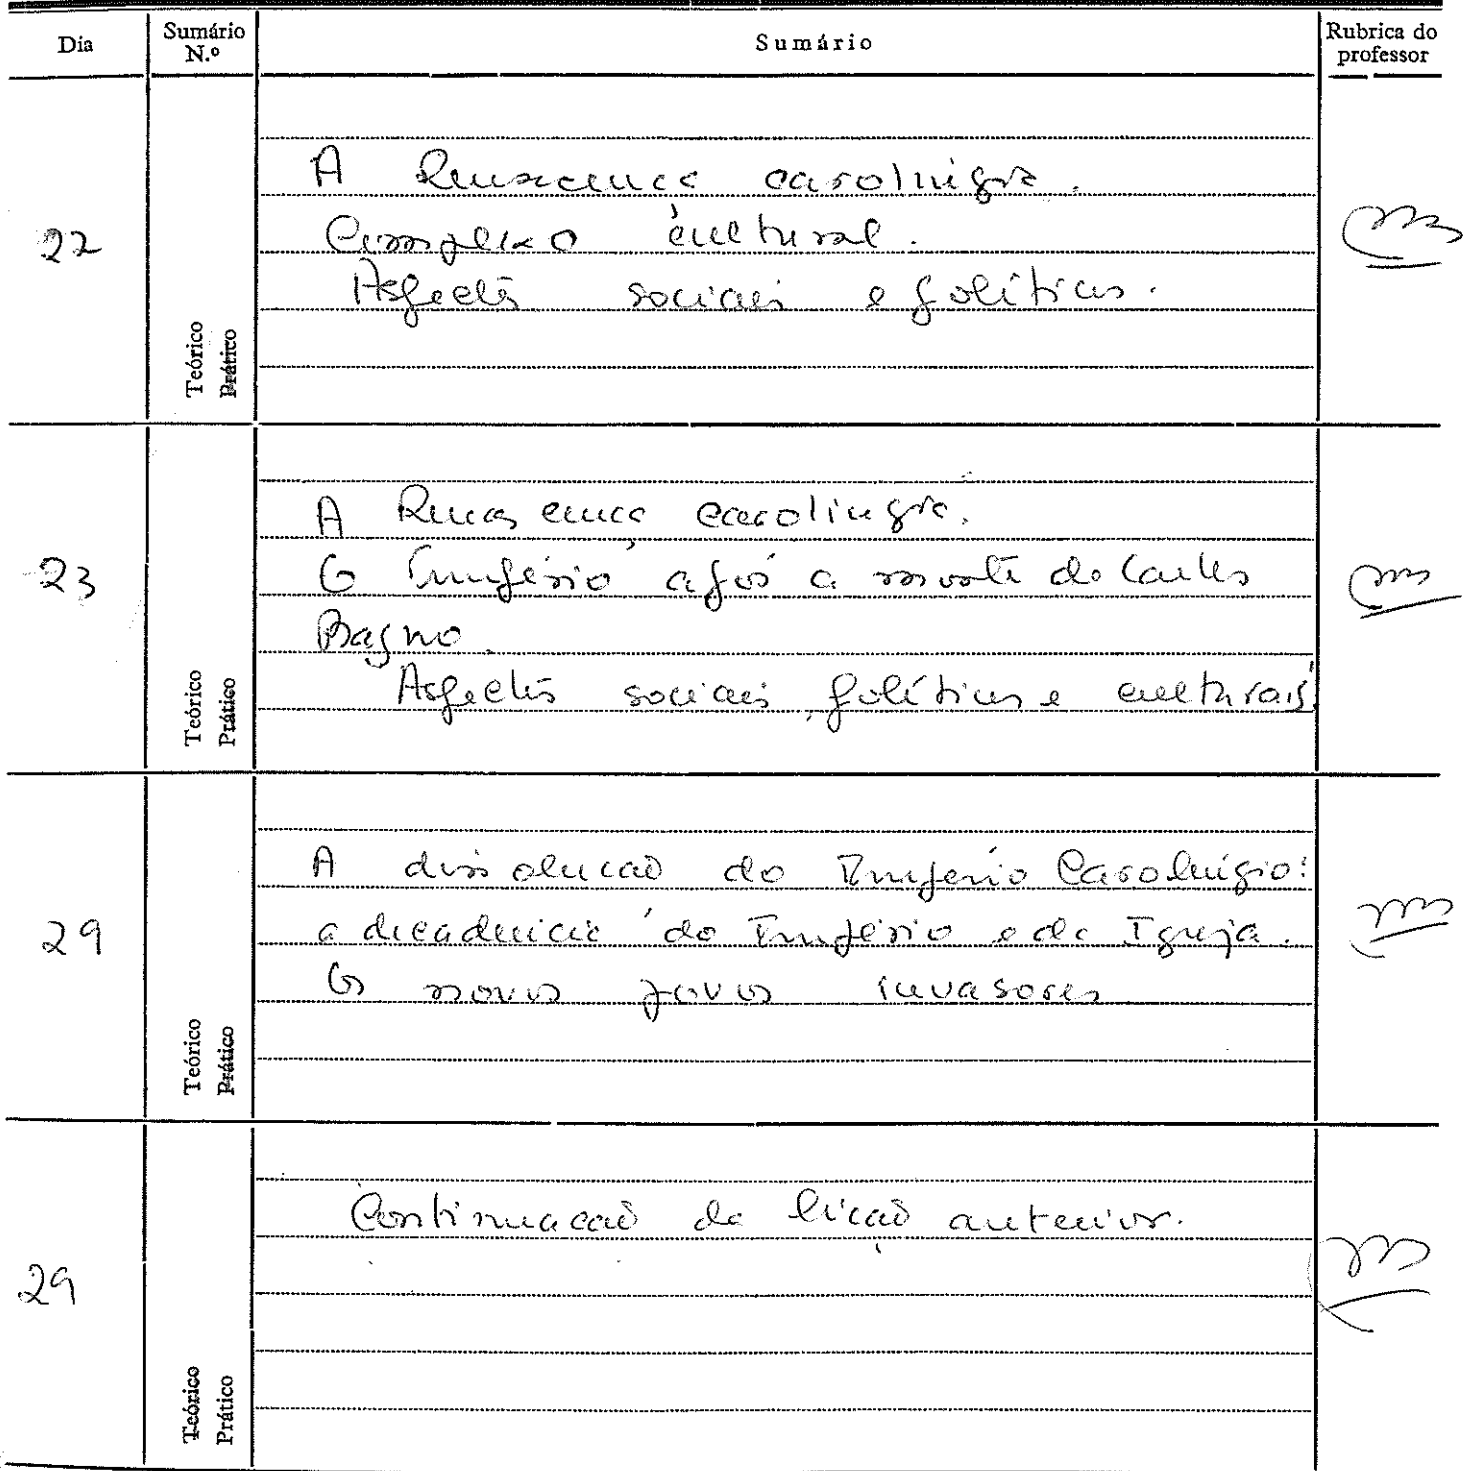 Dia Sumário N.º Sumário Rubrica do professor
22
A Renascença carolíngia.
Complexo cultural.
Aspectos sociais e políticos.
Teórico
Prático
23
A Renascença carolíngia.
O Império após a morte de Carlos
Magno.
Aspectos sociais, políticos e culturais.
Teórico
Prático
29
A dissolução do Império Carolíngio:
a decadência do Império e da Igreja.
Os novos povos invasores
Teórico
Prático
29
Continuação da lição anterior.
Teórico
Prático